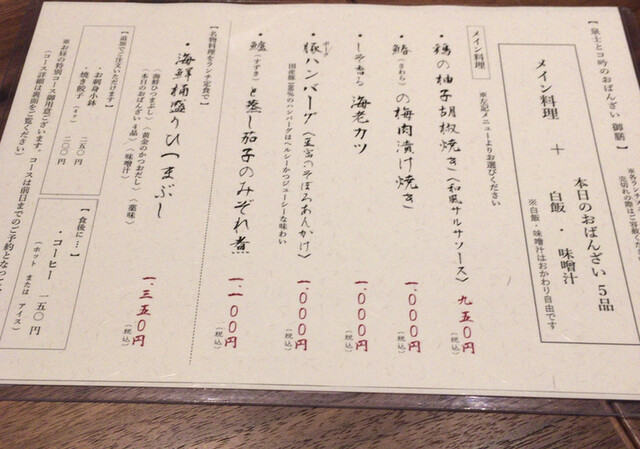 【泉士とコ吟のおばんざい 御膳】
メイン料理 ＋ 本日のおばんざい5品
白飯・味噌汁
※白飯・味噌汁はおかわり自由です
メイン料理
※左記メニューよりお選びください
・鶏の柚子胡椒焼き（和風サルサソース） 九五〇円（税込）
・鰆（さわら）の梅肉漬け焼き 一.〇〇〇円（税込）
・しそ香る 海老カツ 一.〇〇〇円（税込）
・豚（ポーク）ハンバーグ（生姜のそぼろあんかけ） 一.〇〇〇円（税込）
国産豚100％のハンバーグはヘルシーかつジューシーな味わい
・鱸（すずき）と蒸し茄子のみぞれ煮 一.一〇〇円（税込）
【名物料理をランチ定食で】
・海鮮桶盛りひつまぶし 一.三五〇円（税込）
（海鮮ひつまぶし）（黄金のかつおだし）（薬味）
（本日のおばんざい4品）（味噌汁）
【追加でご注文いただけます】
・お刺身小鉢 二五〇円
・焼き餃子（4ケ） 二〇〇円
※お昼の特別コース御用意ございます。コースは前日までのご予約となっ
（コース詳細は裏面をご覧ください）
【食後に…】
・コーヒー 一五〇円
（ホット または アイス）